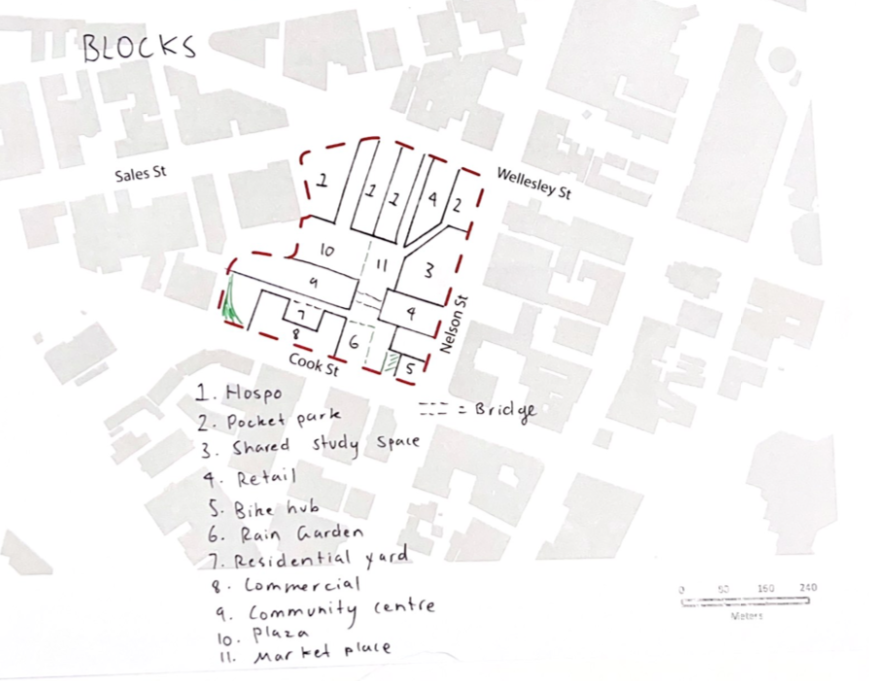 BLOCKS
Sales St
Wellesley St
1
1
2
4
2
10
11
3
9
4
7
8
6
5
Nelson St
Cook St
1. Hospo
2. Pocket park
3. Shared study space
4. Retail
5. Bike hub
6. Rain Garden
7. Residential yard
8. Commercial
9. Community centre
10. Plaza
11. Market place
= Bridge
0 80 160 240
Meters